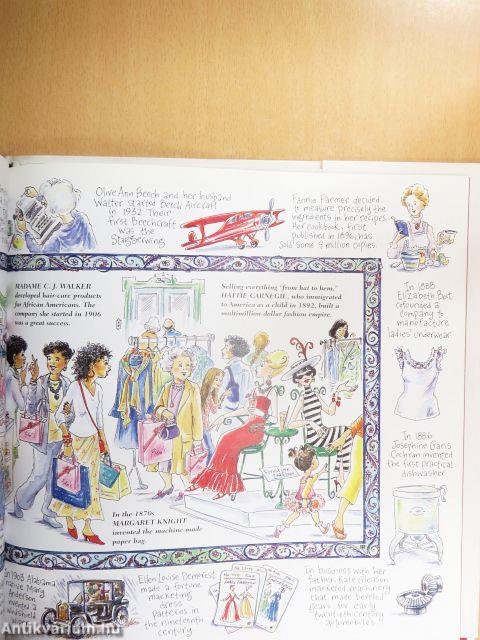 Olive Ann Beech and her husband
Walter started Beech Aircraft
in 1932. Their
first Beechcraft
was the
Staggerwing.
Fannie Farmer decided
to measure precisely the
ingredients in her recipes.
Her cookbook, first
published in 1896, has
sold some 4 million copies.
MADAME C. J. WALKER
developed hair-care products
for African Americans. The
company she started in 1906
was a great success.
Selling everything "from hat to hem,"
HATTIE CARNEGIE, who immigrated
to America as a child in 1892, built a
multimillion-dollar fashion empire.
In 1888
Elizabeth Boit
cofounded a
company to
manufacture
ladies' underwear.
In 1886
Josephine Garis
Cochran invented
the first practical
dishwasher.
In the 1870s
MARGARET KNIGHT
invented the machine-made
paper bag.
In 1903 Alabama
Mary
Anderson
invented a
windshield
Ellen Louise Demorest
made a fortune
marketing
dress
patterns in
the nineteenth
century.
In business with her
father, Kate Gleason
marketed machinery
that made beveled
gears for early
twentieth-century
automobiles.
Antikvarium.hu